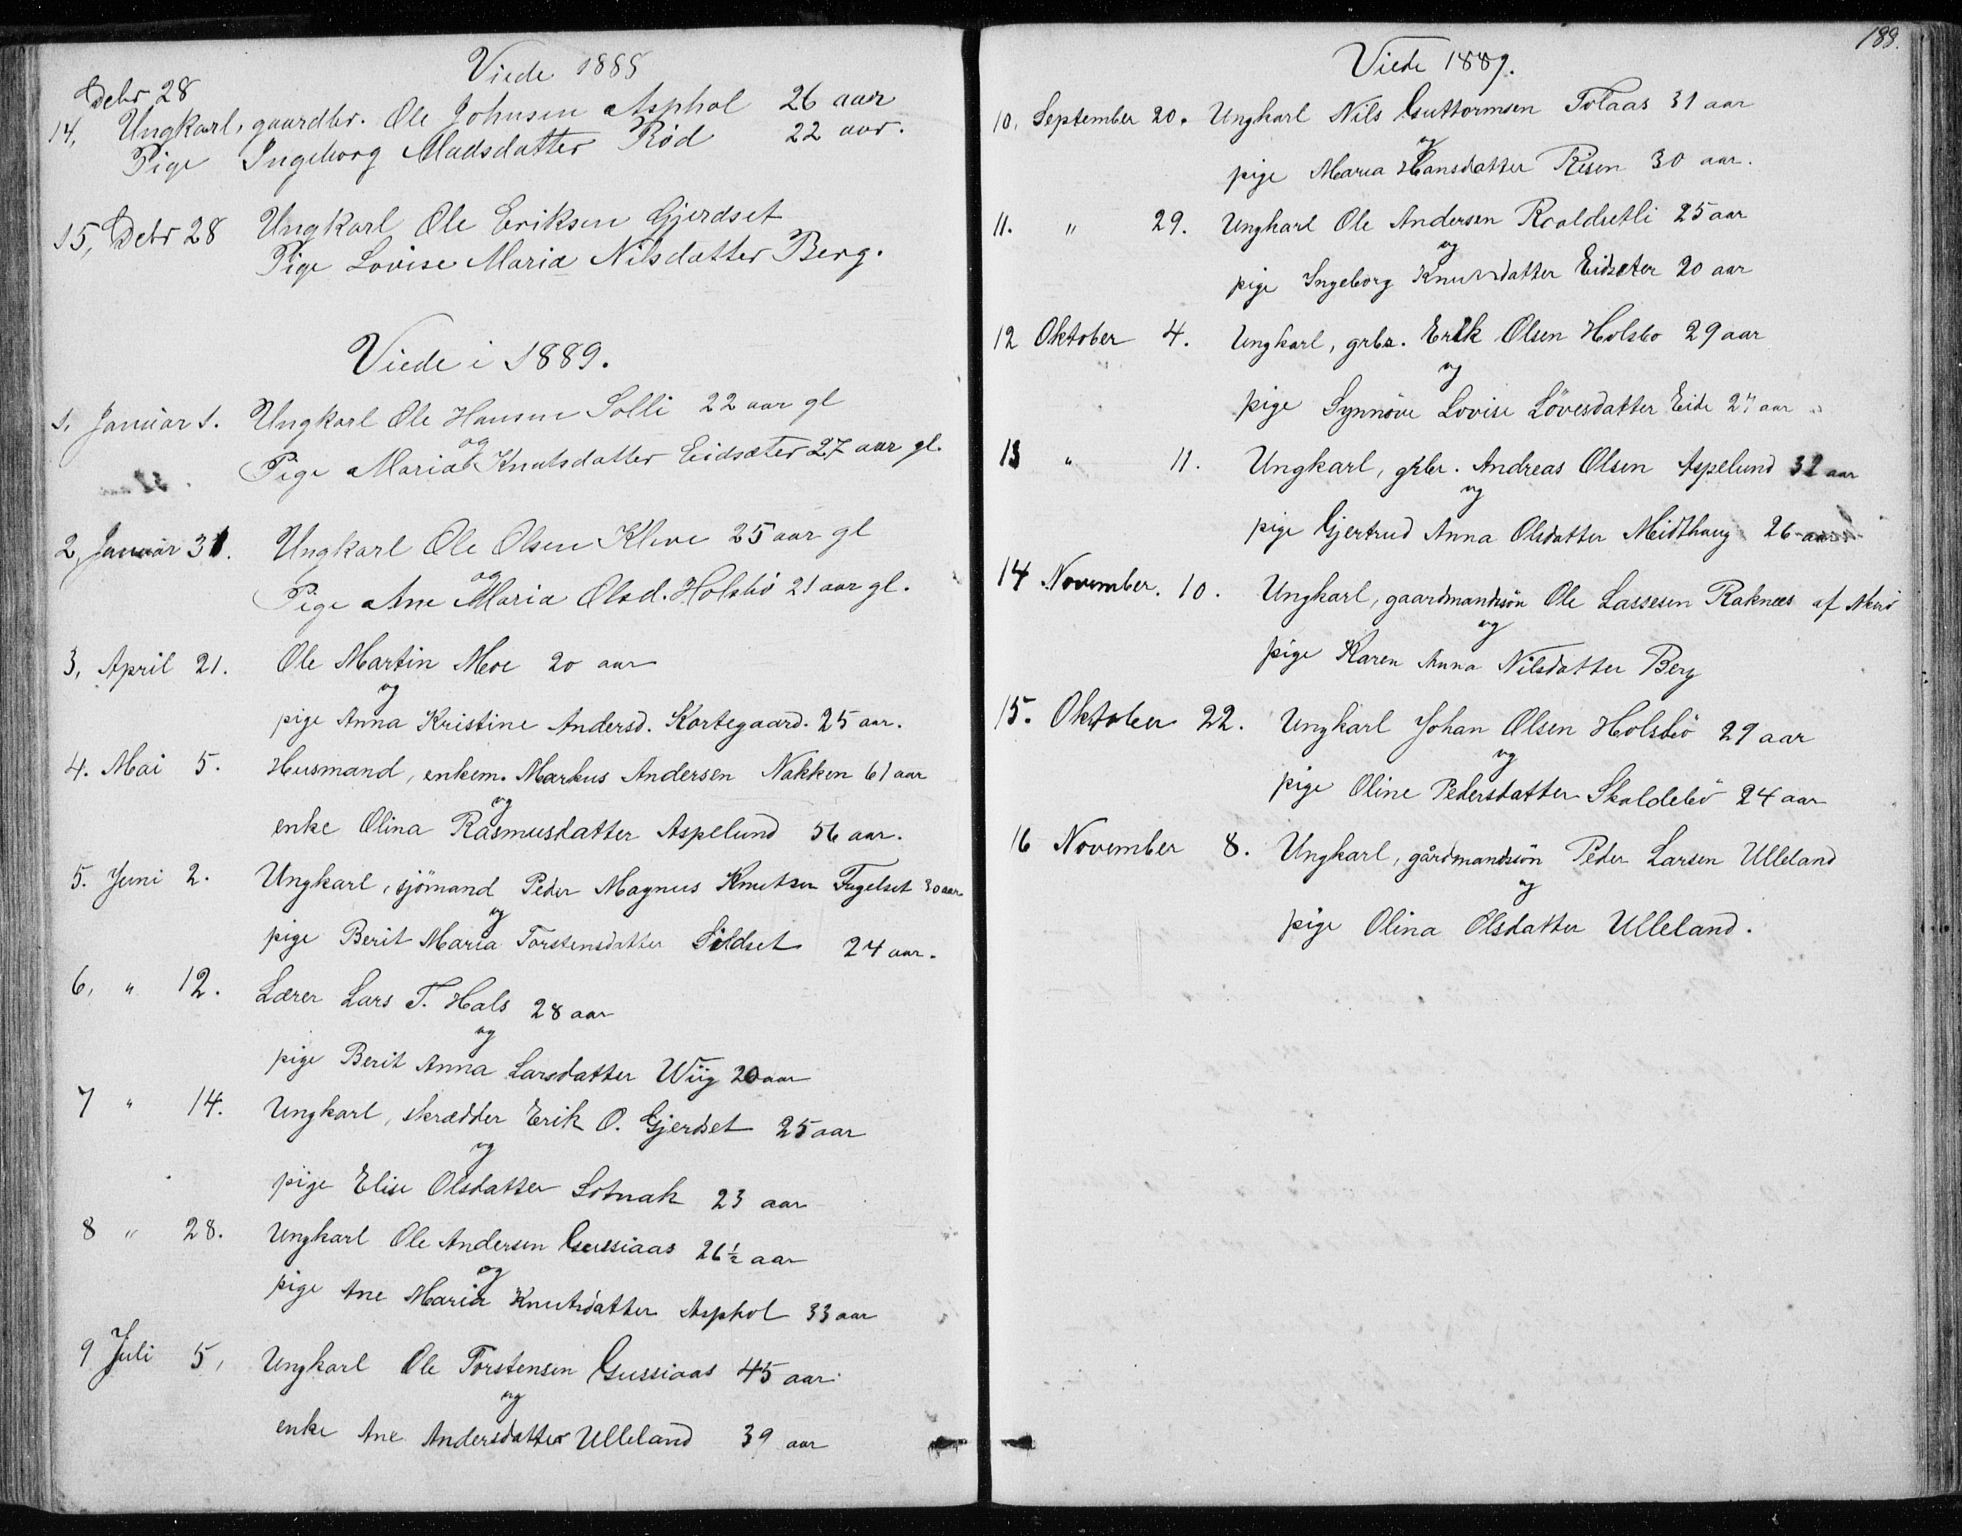 Viede 1888
Debr 28
14, Ungkarl, gaardbr. Ole Johnsen Asphol 26 aar
Pige Ingeborg Madsdatter Rød 22 aar.
15, Debr 28 Ungkarl Ole Eriksen Gjerdset
Pige Lovise Maria Nilsdatter Berg.
Viede i 1889.
1, Januar 1. Ungkarl Ole Hansen Solli 22 aar gl
og
Pige Maria Knutsdatter Eidsæter 27 aar gl.
2, Januar 31. Ungkarl Ole Olsen Kleve 25 aar gl
og
Pige Ane Maria Olsd. Holsbö 21 aar gl.
3, April 21. Ole Martin Moe 20 aar
og
pige Anna Kristine Andersd. Kortegaard. 25 aar.
4. Mai 5. Husmand, enkem. Markus Andersen Nakken 61 aar
og
enke Olina Rasmusdatter Aspelund 56 aar.
5. Juni 2. Ungkarl, sjömand Peder Magnus Knutsen Fugelset 30 aar
og
pige Berit Maria Torstensdatter Sildset 24 aar.
6, " 12. Lærer Lars T. Hals 28 aar
og
pige Berit Anna Larsdatter Wiig 20 aar
7 " 14. Ungkarl, skrædder Erik O. Gjerdset 25 aar
og
pige Elise Olsdatter Sotnak 23 aar
8 " 28. Ungkarl Ole Andersen Gussiaas 26½ aar
og
pige Ane Maria Knutsdatter Asphol 33 aar
9 Juli 5, Ungkarl Ole Torstensen Gussiaas 45 aar
og
enke Ane Andersdatter Ulleland 39 aar
189.
Viede 1889.
10, September 20. Ungkarl Nils Guttormsen Tolaas 31 aar
og
pige Maria Hansdatter Risen 30 aar.
11. " 29. Ungkarl Ole Andersen Roaldsetli 25 aar
og
pige Ingeborg Knutsdatter Eidsæter 20 aar
12 Oktober 4. Ungkarl, grbr. Erik Olsen Holsbo 29 aar
og
pige Synnöve Lovise Lövesdatter Eide 27 aar
13 " 11. Ungkarl, grbr. Andreas Olsen Aspelund 32 aar
og
pige Gjertrud Anna Olsdatter Meidthaug 26 aar
14 November. 10. Ungkarl, gaardmandsön Ole Lassesen Raknes af
og
pige Karen Anna Nilsdatter Berg
15. Oktober 22. Ungkarl Johan Olsen Holsbö 29 aar
og
pige Oline Pedersdatter Skaldebö 24 aar
16 November 8. Ungkarl, gårdmandsön Peder Larsen Ulleland
og
pige Olina Olsdatter Ulleland.